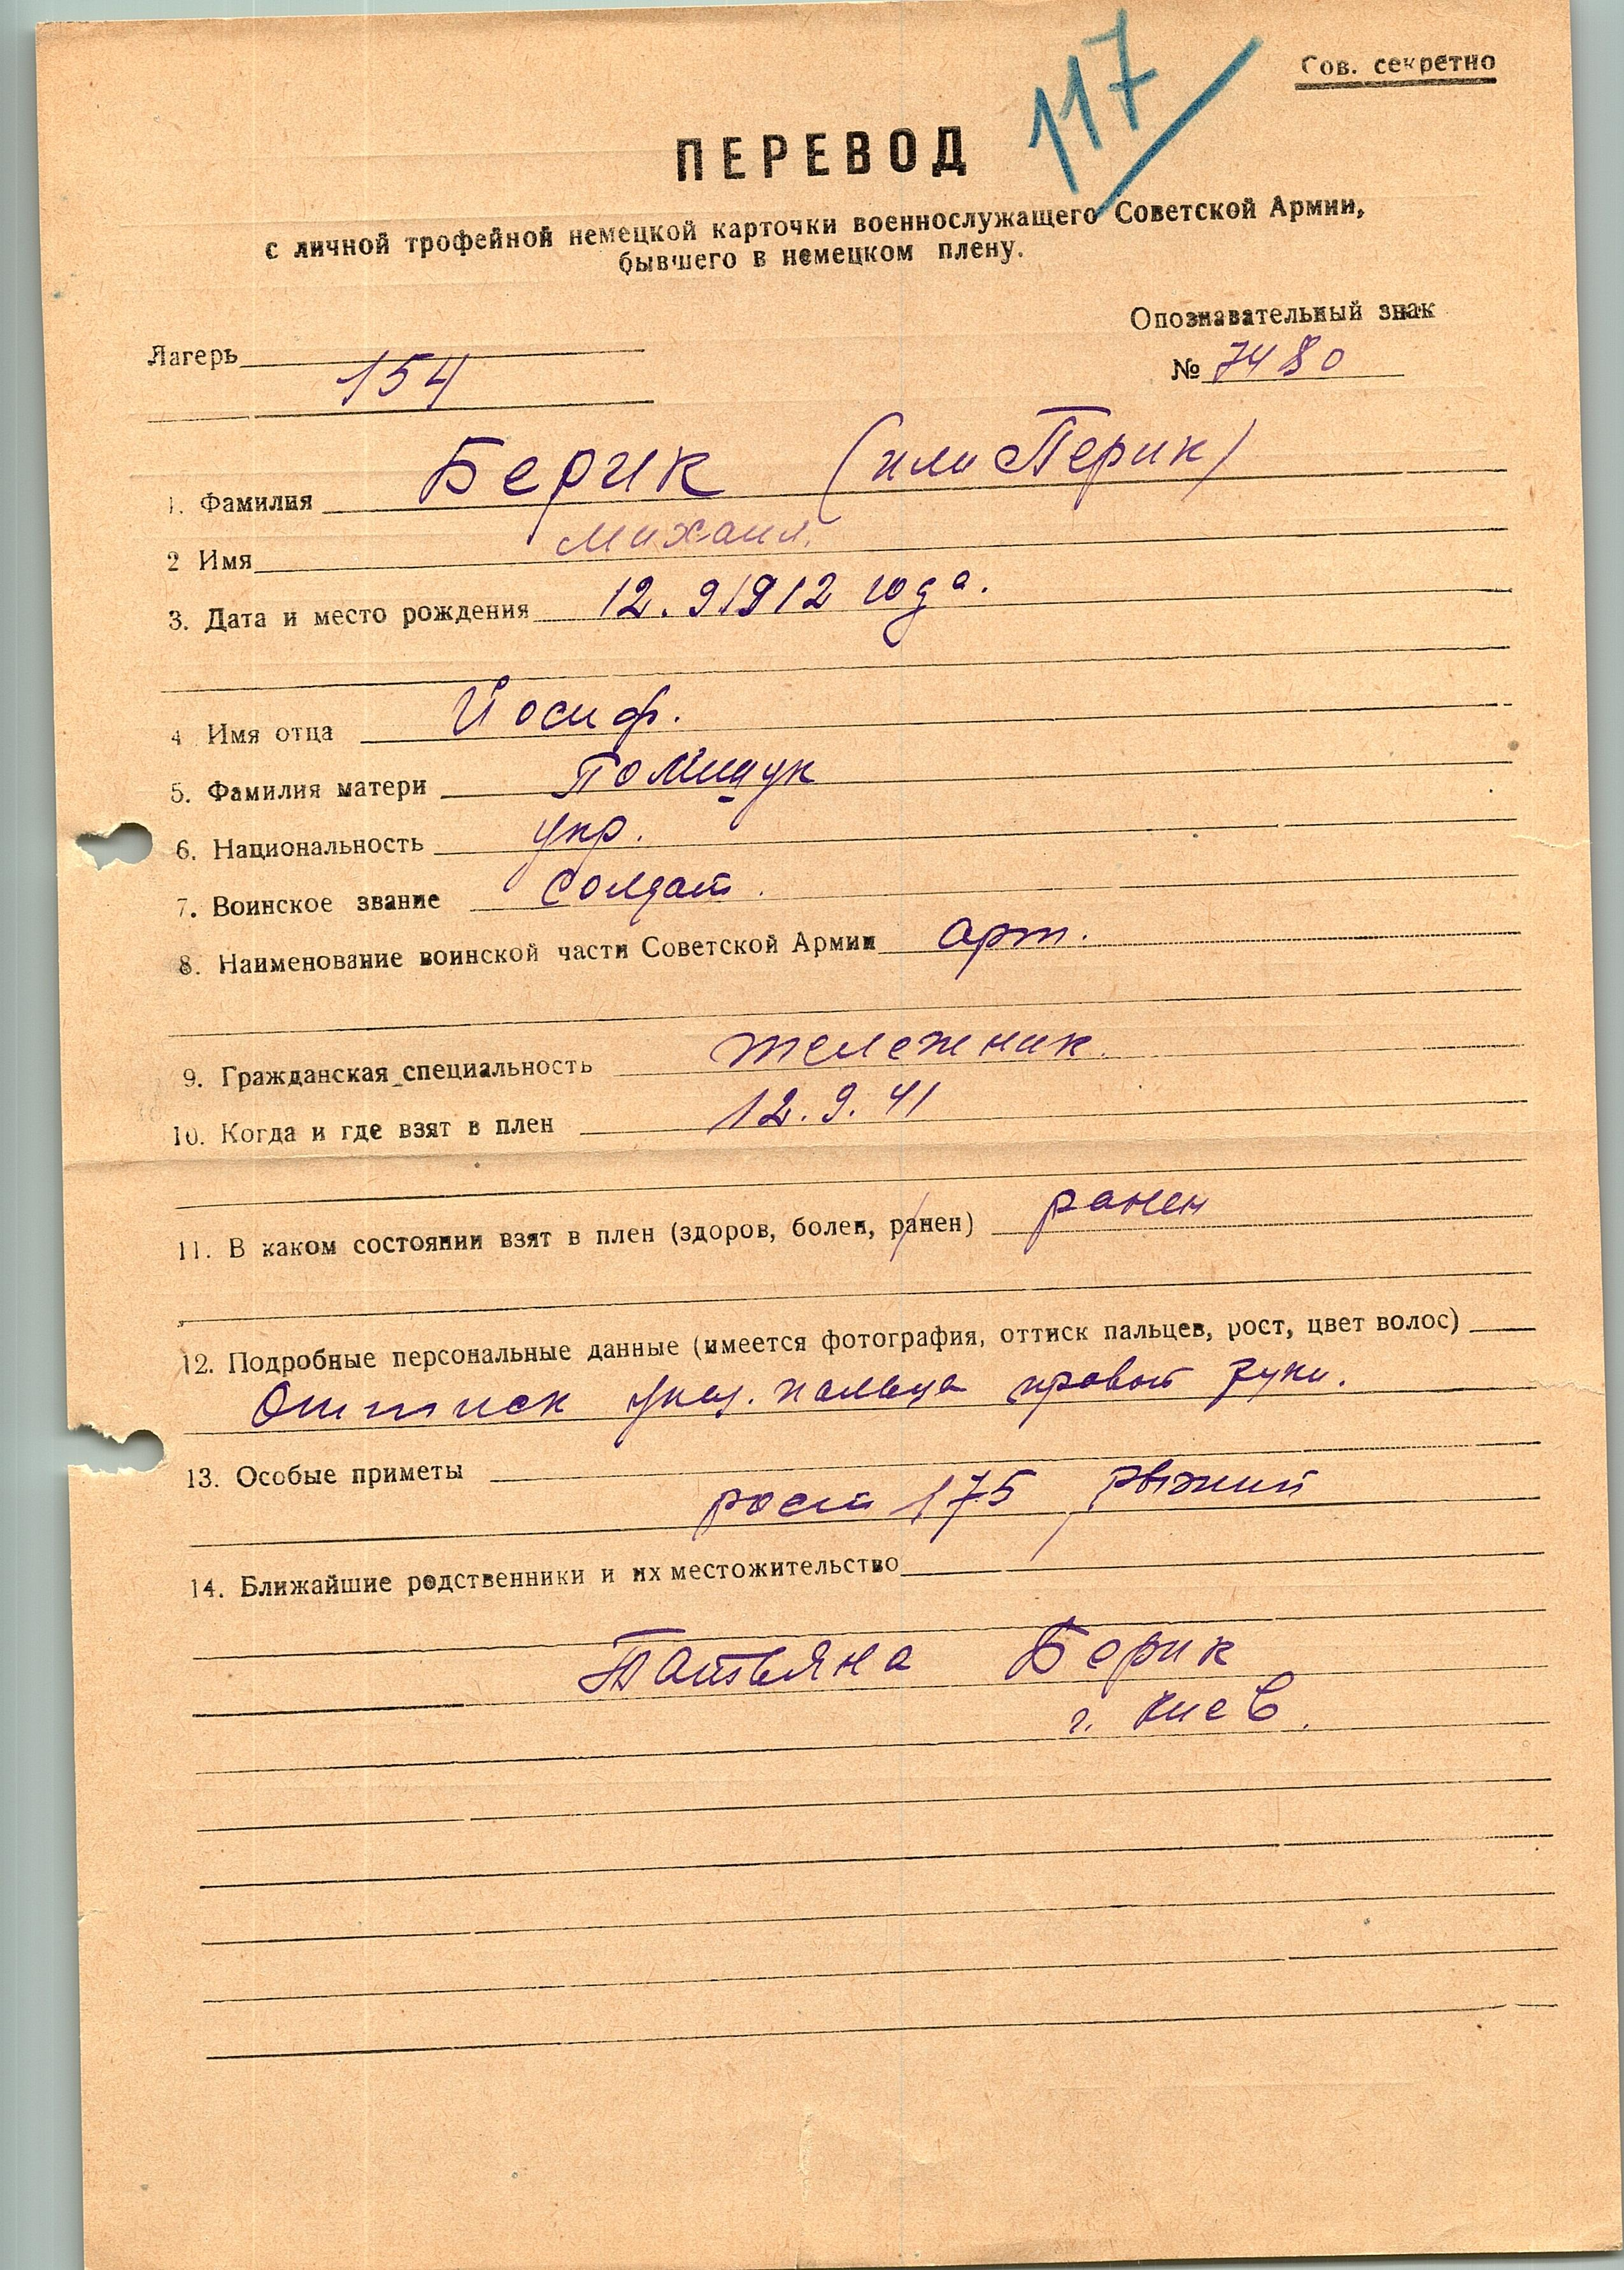 117
Сов. секретно
ПЕРЕВОД
с личной трофейной немецкой карточки военнослужащего Советской Армии,
бывшего в немецком плену.
Опознавательный знак
Лагерь 154
№ 7480
1. Фамилия Берик (или Перик)
2 Имя Михаил.
3. Дата и место рождения 12.9.1912 года.
4 Имя отца Йосиф.
5. Фамилия матери
6. Национальность укр.
7. Воинское звание солдат.
8. Наименование воинской части Советской Армии арт.
9. Гражданская специальность
10. Когда и где взят в плен 12.9.41
11. В каком состоянии взят в плен (здоров, болен, ранен) ранен
12. Подробные персональные данные (имеется фотография, оттиск пальцев, рост, цвет волос)
Оттиск указ. пальца правой руки.
13. Особые приметы
рост 175, рыжий
14. Ближайшие родственники и их местожительство
Татьяна Берик
г. Киев.